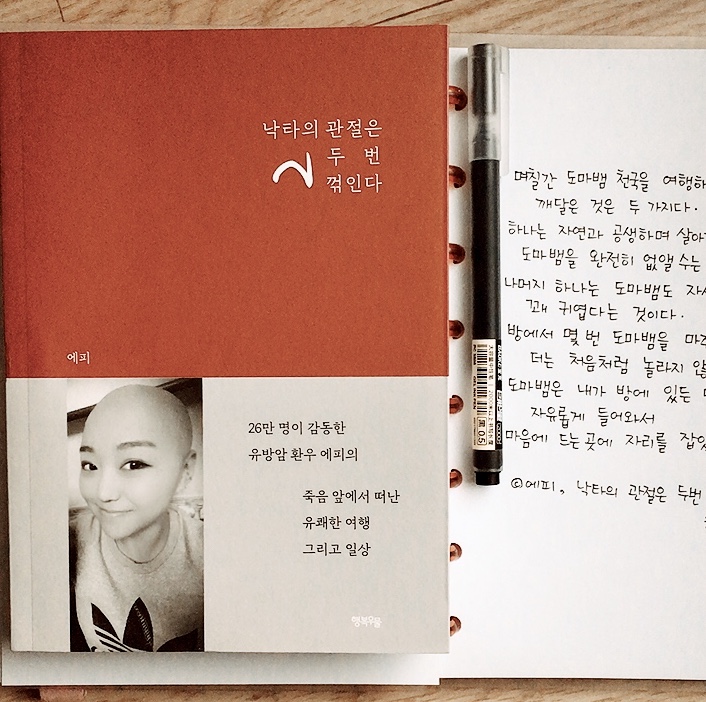 낙타의 관절은
두 번
꺾인다
에피
26만 명이 감동한
유방암 환우 에피의
죽음 앞에서 떠난
유쾌한 여행
그리고 일상
행복우물
며칠간 도마뱀 천국을 여행하
깨달은 것은 두 가지다.
하나는 자연과 공생하며 살아
도마뱀을 완전히 없앨 수는
나머지 하나는 도마뱀도 자
꽤 귀엽다는 것이다.
방에서 몇 번 도마뱀을 마
더는 처음처럼 놀라지 않
도마뱀은 내가 방에 있든
자유롭게 들어와서
마음에 드는 곳에 자리를 잡았
©에피, 낙타의 관절은 두번